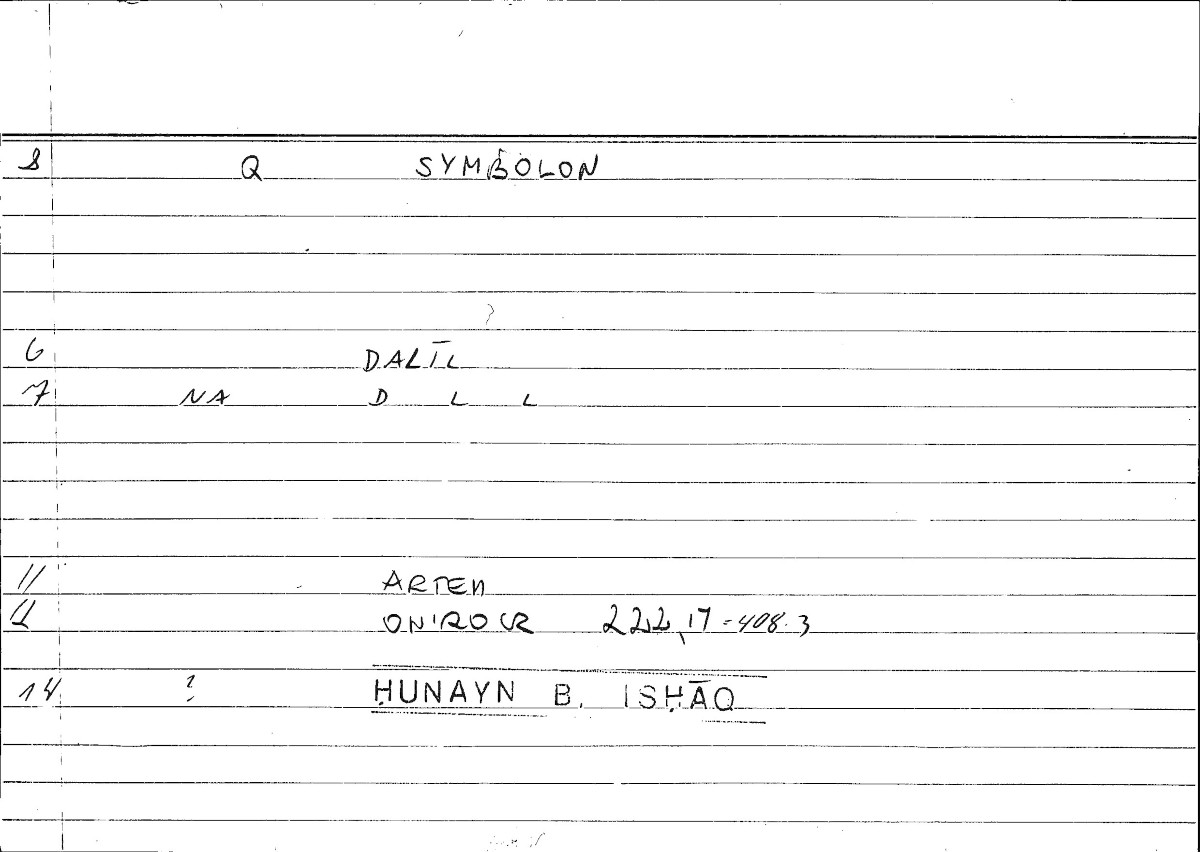 8 Q SYMBOLON
6 DALĪL
7 NA D L L
11 ARTEM
12 ONIROCR 222,17 = 408.3
14 ? ḤUNAYN B. ISḤĀQ